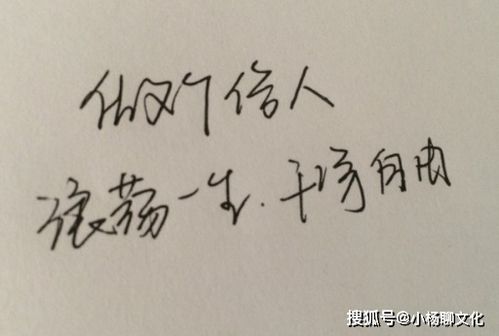 做个俗人
浪荡一生.自由
搜狐号@小杨聊文化